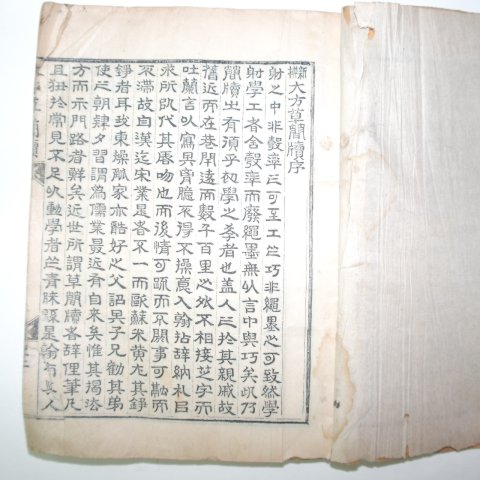 新撰大方草簡牘序
射之中非彀率之可至工之巧非繩墨之可致然學
射學工者舍彀率而廢繩墨無以言中與巧矣此乃
簡牘之有須乎初學之孝者也盖人之於其親戚故
舊近而在巷閭遠而數千百里之外不相接芝宇而
吐蘭言以寫其胷臆不得不操意入翰拈辞納札呂
求所以代其唇吻也而後情可疏而不關事可勒而
不滯故自漢迄宋業是者不一而歐蘇朱黄尤其錚
錚者耳故東操觚家亦酷好之父詔其子兄勸其弟
使之朝肄夕習謂為儒業最近有自来矣惟其揭法
方而示門路者鮮矣近世所謂草簡牘者辞俚筆
且狃於常見不足以動學者之青眛
草簡牘